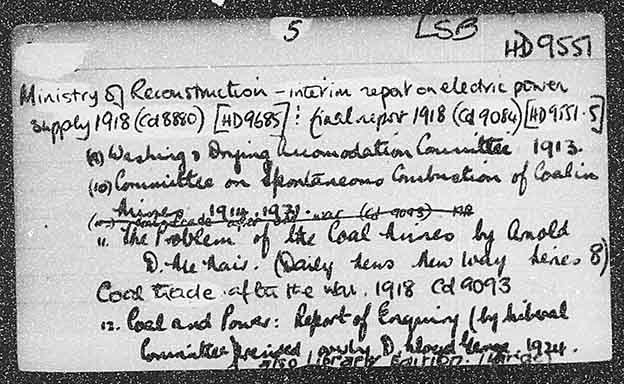 5 LSB
HD9551
Ministry of Reconstruction - interim report on electric power
supply 1918 (Cd 8880) [HD9685] : final report 1918 (Cd 9084) [HD9551.5]
(9) Washing & Drying Accomodation Committee 1913.
(10) Committee on Spontaneous Combustion of Coal in
Mines 1914, 1921.
coal trade after the war (Cd 9093)
11. The Problem of the Coal Mines by Arnold
D. McNair. (Daily News New Way Series 8)
Coal trade after the war. 1918 Cd 9093
12. Coal and Power: Report of Enquiry (by Liberal
Committee) presided over by D. Lloyd George 1924.
also Library Edition.